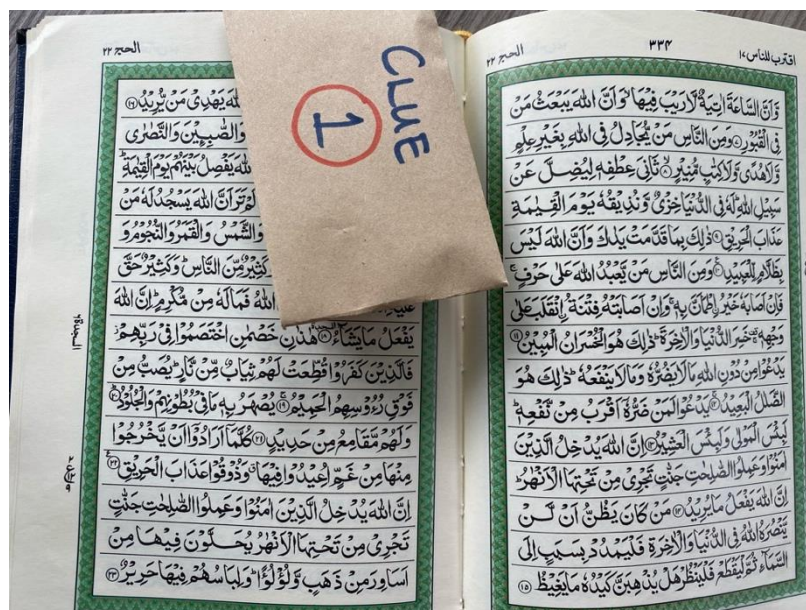 اقترب للناس ۱۷ ۳۳۴ الحج ۲۲
وَّاَنَّ السَّاعَةَ اٰتِيَةٌ لَّا رَيْبَ فِيْهَا ۙ وَاَنَّ اللّٰهَ يَبْعَثُ مَنْ
فِي الْقُبُوْرِ ۷ وَمِنَ النَّاسِ مَنْ يُّجَادِلُ فِي اللّٰهِ بِغَيْرِ عِلْمٍ
وَّلَا هُدًى وَّلَا كِتٰبٍ مُّنِيْرٍ ۸ ثَانِيَ عِطْفِهٖ لِيُضِلَّ عَنْ
سَبِيْلِ اللّٰهِ ؕ لَهٗ فِي الدُّنْيَا خِزْيٌ وَّنُذِيْقُهٗ يَوْمَ الْقِيٰمَةِ
عَذَابَ الْحَرِيْقِ ۹ ذٰلِكَ بِمَا قَدَّمَتْ يَدٰكَ وَاَنَّ اللّٰهَ لَيْسَ
بِظَلَّامٍ لِّلْعَبِيْدِ ۱۰ وَمِنَ النَّاسِ مَنْ يَّعْبُدُ اللّٰهَ عَلٰى حَرْفٍ ۚ
فَاِنْ اَصَابَهٗ خَيْرُ ۨ اطْمَاَنَّ بِهٖ ۚ وَاِنْ اَصَابَتْهُ فِتْنَةُ ۨ انْقَلَبَ عَلٰى
وَجْهِهٖ ۚ خَسِرَ الدُّنْيَا وَالْاٰخِرَةَ ؕ ذٰلِكَ هُوَ الْخُسْرَانُ الْمُبِيْنُ ۱۱
يَدْعُوْا مِنْ دُوْنِ اللّٰهِ مَا لَا يَضُرُّهٗ وَمَا لَا يَنْفَعُهٗ ؕ ذٰلِكَ هُوَ
الضَّلٰلُ الْبَعِيْدُ ۱۲ يَدْعُوْا لَمَنْ ضَرُّهٗۤ اَقْرَبُ مِنْ نَّفْعِهٖ ؕ
لَبِئْسَ الْمَوْلٰى وَلَبِئْسَ الْعَشِيْرُ ۱۳ اِنَّ اللّٰهَ يُدْخِلُ الَّذِيْنَ
اٰمَنُوْا وَعَمِلُوا الصّٰلِحٰتِ جَنّٰتٍ تَجْرِيْ مِنْ تَحْتِهَا الْاَنْهٰرُ ؕ
اِنَّ اللّٰهَ يَفْعَلُ مَا يُرِيْدُ ۱۴ مَنْ كَانَ يَظُنُّ اَنْ لَّنْ
يَّنْصُرَهُ اللّٰهُ فِي الدُّنْيَا وَالْاٰخِرَةِ فَلْيَمْدُدْ بِسَبَبٍ اِلَى
السَّمَآءِ ثُمَّ لْيَقْطَعْ فَلْيَنْظُرْ هَلْ يُذْهِبَنَّ كَيْدُهٗ مَا يَغِيْظُ ۱۵
CLUE
1
الحج ۲۲
اللّٰهَ يَهْدِيْ مَنْ يُّرِيْدُ ۱۶
وَالصّٰبِـِٕيْنَ وَالنَّصٰرٰى
اللّٰهَ يَفْصِلُ بَيْنَهُمْ يَوْمَ الْقِيٰمَةِ ؕ
لَمْ تَرَ اَنَّ اللّٰهَ يَسْجُدُ لَهٗ مَنْ
وَالشَّمْسُ وَالْقَمَرُ وَالنُّجُوْمُ وَ
كَثِيْرٌ مِّنَ النَّاسِ ؕ وَكَثِيْرٌ حَقَّ
اللّٰهُ فَمَا لَهٗ مِنْ مُّكْرِمٍ ؕ اِنَّ اللّٰهَ
يَفْعَلُ مَا يَشَآءُ ۱۸ هٰذٰنِ خَصْمٰنِ اخْتَصَمُوْا فِيْ رَبِّهِمْ ۫
فَالَّذِيْنَ كَفَرُوْا قُطِّعَتْ لَهُمْ ثِيَابٌ مِّنْ نَّارٍ ؕ يُصَبُّ مِنْ
فَوْقِ رُءُوْسِهِمُ الْحَمِيْمُ ۱۹ يُصْهَرُ بِهٖ مَا فِيْ بُطُوْنِهِمْ وَالْجُلُوْدُ ۲۰
وَلَهُمْ مَّقَامِعُ مِنْ حَدِيْدٍ ۲۱ كُلَّمَاۤ اَرَادُوْۤا اَنْ يَّخْرُجُوْا
مِنْهَا مِنْ غَمٍّ اُعِيْدُوْا فِيْهَا ۗ وَذُوْقُوْا عَذَابَ الْحَرِيْقِ ۲۲
اِنَّ اللّٰهَ يُدْخِلُ الَّذِيْنَ اٰمَنُوْا وَعَمِلُوا الصّٰلِحٰتِ جَنّٰتٍ
تَجْرِيْ مِنْ تَحْتِهَا الْاَنْهٰرُ يُحَلَّوْنَ فِيْهَا مِنْ
اَسَاوِرَ مِنْ ذَهَبٍ وَّلُؤْلُؤًا ؕ وَلِبَاسُهُمْ فِيْهَا حَرِيْرٌ ۲۳